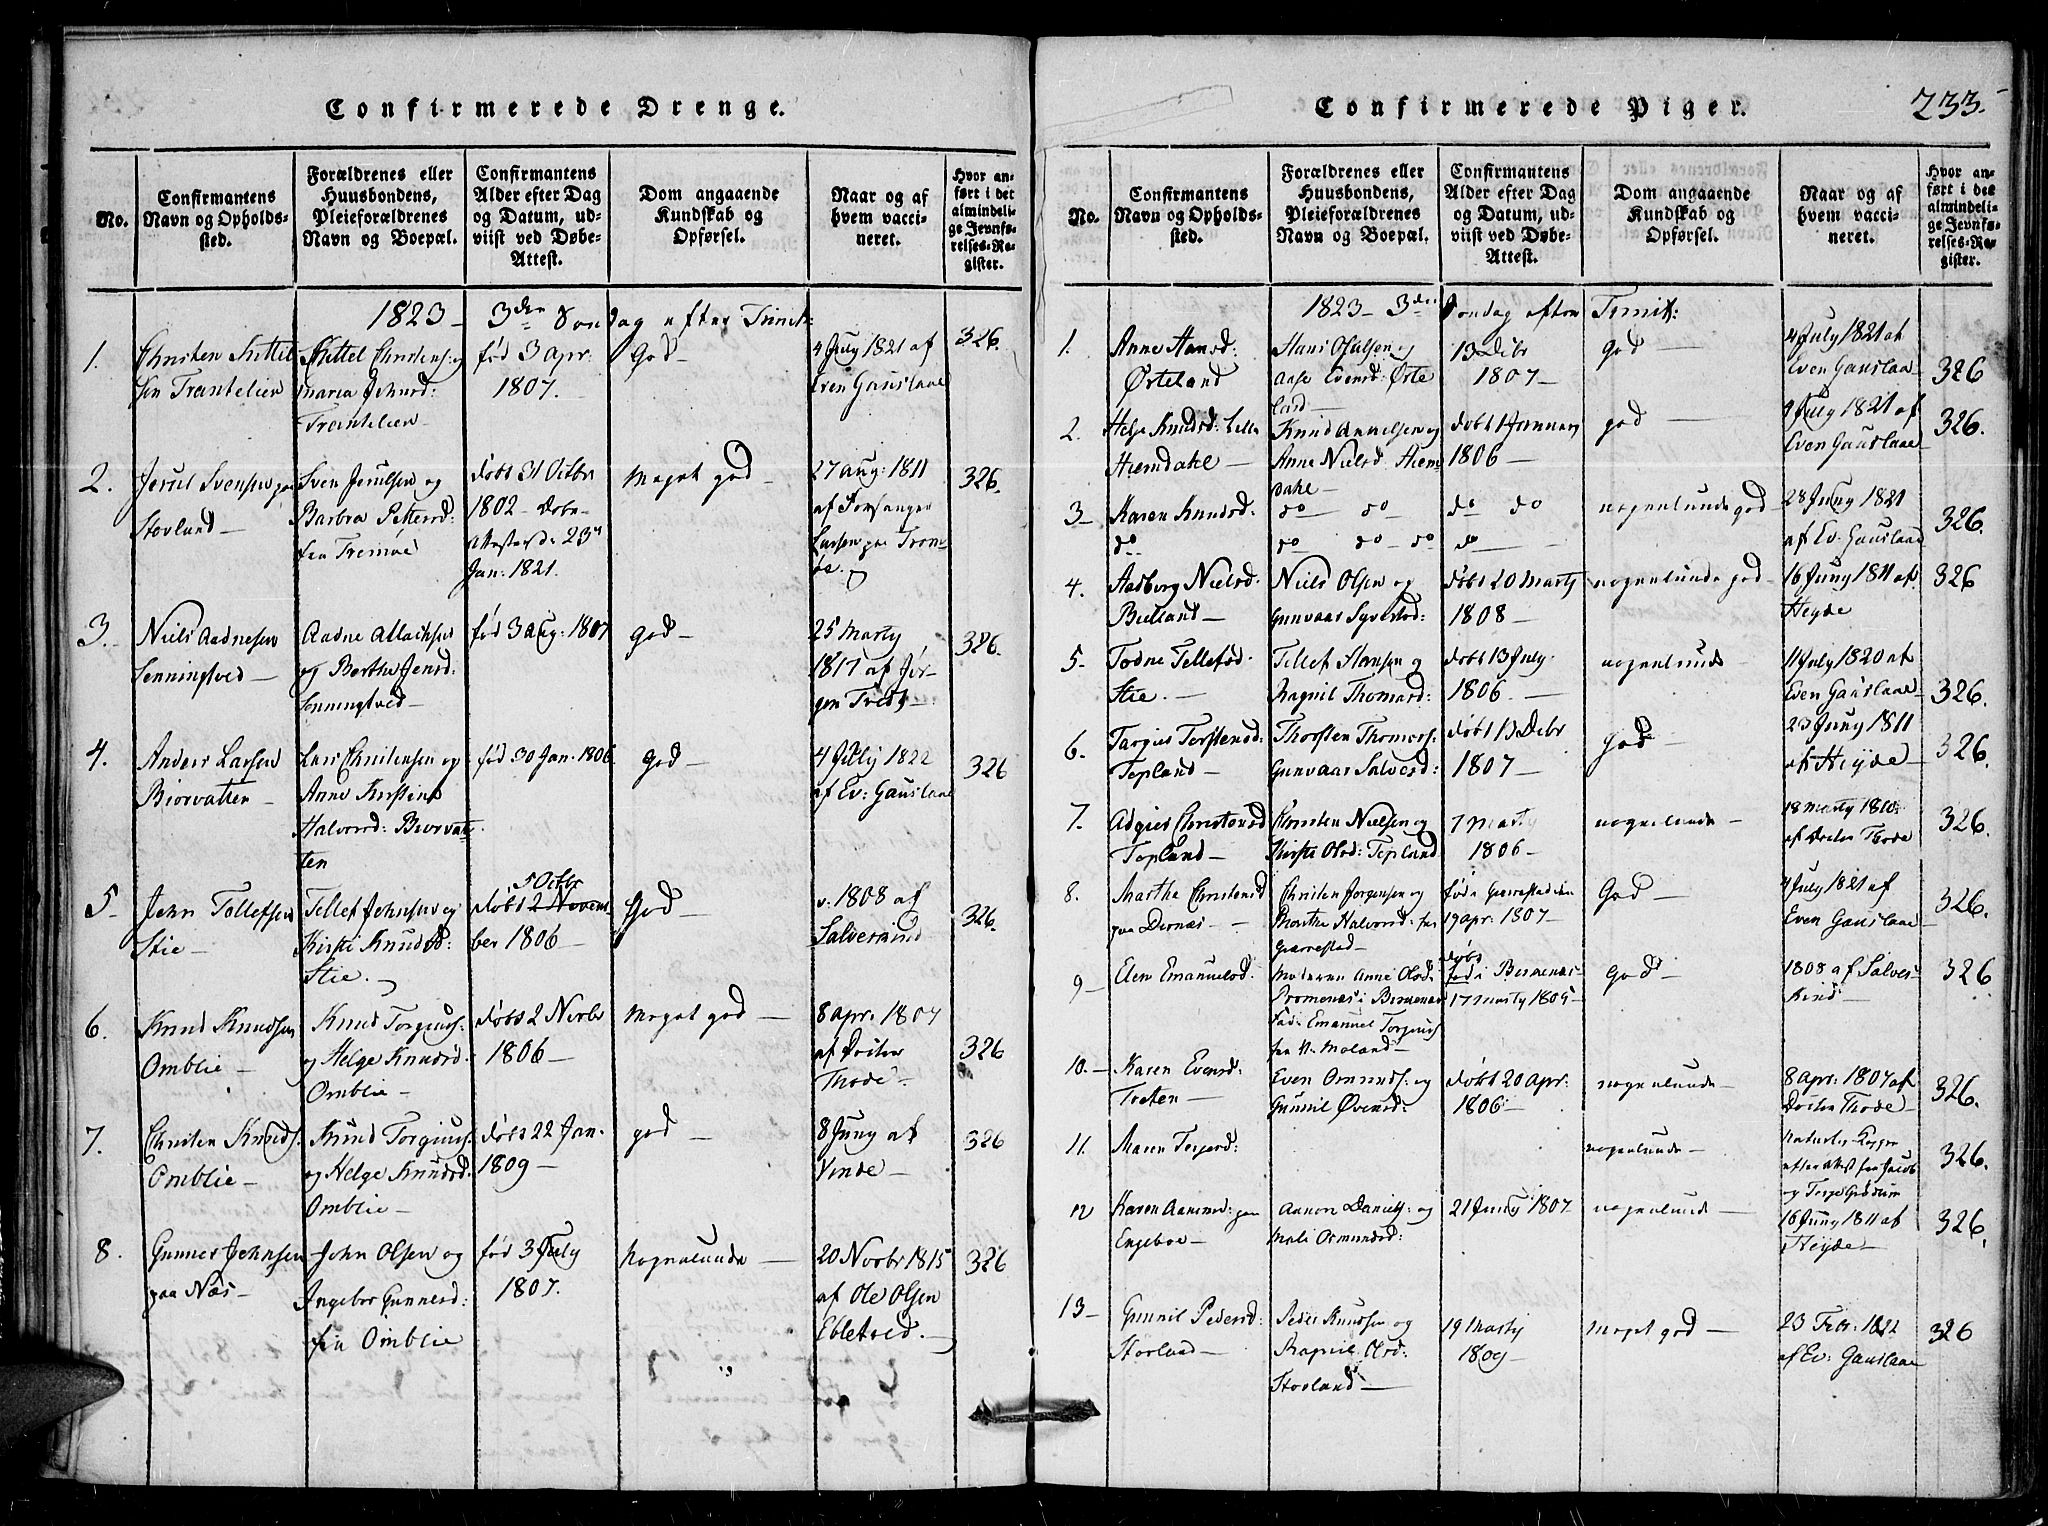 Confirmerede Drenge.
No.
Confirmantens
Navn og Opholds-
sted.
Forældrenes eller
Huusbondens,
Pleieforældrenes
Navn og Boepæl.
Confirmantens
Alder efter Dag
og Datum, ud-
viist ved Døbe-
Attest.
Dom angaaende
Kundskab og
Opførsel.
Naar og af
hvem vacci-
neret.
Hvor an-
ført i det
almindeli-
ge Jevnfø-
relses-Re-
gister.
1823 – 3den Søndag efter Trinit:
1.
Christen Kittel
sen Trantelien
Kittel Christens: og
Maria Johnsd:
Trantelien
fød 3 apr:
1807.
God –
4 July 1821 af
Even Gauslaae
326.
2.
Jerul Svensen paa
Stovland –
Sven Jerulsen og
Barbra Pettersd:
fra Tromøe
døbt 31 Octbr
1802 – Døbe-
attest d: 23
Jan: 1821.
Meget god –
27 aug: 1811
af
Larsen paa Trom-
øe.
326.
3.
Niels Aadnesen
Senningtved –
Aadne
og Berthe Jensd:
Senningtved –
fød 3 aug: 1807
god –
25 Marty
1817 af Jør-
gen Tveds –
326.
4.
Anders Larsen
Biorvatten –
Lars Christensen og
Anne Kirstine
Halvorsd: Biorvat-
ten
fød 30 Jan: 1806.
god –
4 July 1822
af Ev: Gauslaae
326
5 –
John Tellefsen
Stie –
Tellef Johnsen og
Kirsti Knudsd:
Stie. –
5 Octbr
døbt 2 Novem
ber 1806 –
God –
v. 1808 af
Salvesind
326.
6.
Knud Knudsen
Omblie –
Knud Torgiuss:
og Helge Knudsd:
Omblie –
døbt 2 Novbr
1806 –
Meget god –
8 apr: 1807
af Docter
Thode –
326
7.
Christen Knuds:
Omblie –
Knud Torgiuss:
og Helge Knudsd.
Omblie –
døbt 22 Jan.
1809 –
god –
8 Juny af
Vinde –
326
8.
Gunner Johnsen
paa Næs –
John Olsen og
Ingebor Gunnersd:
fra Omblie
fød 3 July
1807.
Nogenlunde –
20 Novbr 1815
af Ole Olsen
Ebletved. –
326
Confirmerede Piger.
233.
No.
Confirmantens
Navn og Opholds-
sted.
Forældrenes eller
Huusbondens,
Pleieforældrenes
Navn og Boepæl.
Confirmantens
Alder efter Dag
og Datum, ud-
viist ved Døbe-
Attest.
Dom angaaende
Kundskab og
Opførsel.
Naar og af
hvem vacci-
neret.
Hvor an-
ført i det
almindeli-
ge Jevnfø-
relses-Re-
gister.
1823 – 3den Søndag efter Trinit:
1.
Anne Hansd:
Ørteland
Hans Olufsen og
Aase Evensd: Ørte
land –
13 Debr
1807 –
god –
4 July 1821 af
Even Gauslaa –
326
2.
Helje Knudsd: Lille
Hiemdahl –
Knud Anvelsen og
Anne Nielsd Hiem
dahl –
døbt 1 Januar
1806 –
god –
9 July 1821 af
Even Gauslaae
326.
3 –
Karen Knudsd:
do
do do
do do do
do do
do
nogenlunde god –
28 Juny 1821
af Ev: Gauslaae
326.
4.
Aasborg Nielsd.
Bieland –
Niels Olsen og
Gunvaar Syvertsd:
døbt 20 Marty
1808 –
nogenlunde god –
16 Juny 1811 af
Heyde
326
5.
Todne Tellefsd.
Stie. –
Tellef Hansen og
Ragnil Thomasd:
døbt 13 July
1806. –
nogenlunde –
11 July 1820 af
Even Gauslaae –
326.
6.
Targier Torstensd:
Topland –
Thorsten Thomass.
Gunvaar Salvesd:
døbt 13 Debr
1807 –
God –
23 Juny 1811
af Heyde –
326.
7.
Adgier Christensd
Topland –
Christen Nielsen og
Kirsti Olsd: Topland
7 Marty
1806 –
nogenlunde –
18 Marty 1810
af Docter Thode
326.
8.
Marthe Christensd
paa Dernæs –
Christen Jorgensen og
Marthe Halvorsd: fra
Gierrestad –
fød i Gierrestad den
19 apr: 1807 –
God –
4 July 1821 af
Even Gauslaae –
326.
9 –
Elen Emanuelsd.
Moderen Anne Olsd.
Promenæs i
Fad: Emanuel Torgiuss
fra N: Moland –
døbt
fød i
17 Marty 1805 –
God –
1808 af Salves-
kind –
326
10. –
Karen Evensd:
Treten –
Even Ormunds: og
Gunnil Øvensd:
døbt 20 apr:
1806 –
nogenlunde –
8 apr: 1807 af
Docter Thode –
326.
11.
Maren Terjersd:
nogenlunde –
Naturlig Kopper
efter attest fra Jacob
og Terje
326.
12
Karen Aanensd: paa
Engeboe –
Aanen Daniels: og
Mali Ormundsd:
21 Juny 1807
nogenlunde –
16 Juny 1811 af
Heyde –
326.
13 –
Gunnil Pedersd:
Stovland –
Peder Knudsen og
Ragnil Olsd:
Stovland –
19 Marty
1809 –
Meget god –
23 Febr: 1822
af Ev: Gauslaae
326